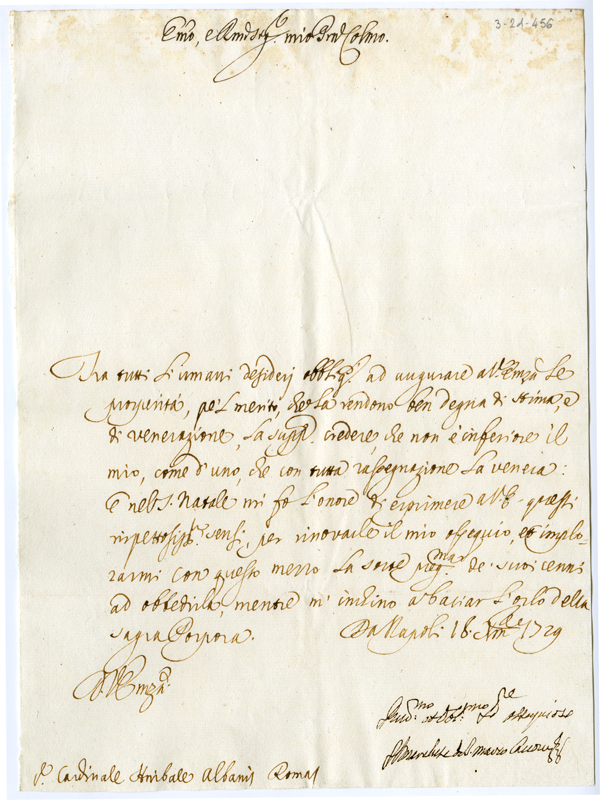 3-21-456
Emo, e Rmo Sig.r mio Prdn Colmo.
Tra tutti l'umani desiderj obblig.i ad augurare all'Emza le
prosperità, pe'l merito, che la rendono ben degna di stima, e
di venerazione, la suppl. credere, che non è inferiore il
mio, come d'uno, che con tutta rassegnazione la venera:
e nel S. Natale mi fo l'onore di esprimere a V.E. questi
rispettosiss.i sensi, per rinovarle il mio ossequio, et implo-
rarmi con questo mezzo la sorte de' suoi cenni
ad obbedirla, mentre m'inchino a baciar l'orlo della
sagra Porpora. Da Napoli 18. Xmbre 1729
D V Emza
ossequioso
Il Marchese di S. Mauro
S.r Cardinale Anibale Albani Roma